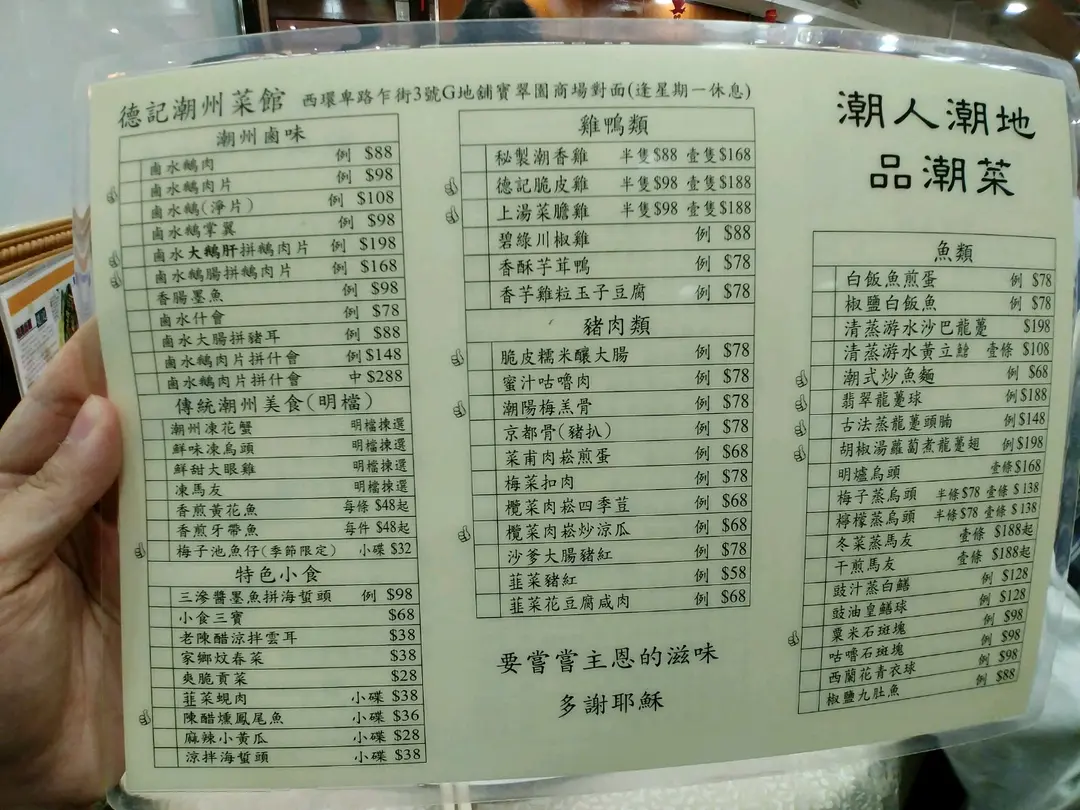 德記潮州菜館 西環卑路乍街3號G地舖寶翠園商場對面(逢星期一休息)
潮州鹵味
鹵水鵝肉 例 $88
鹵水鵝肉片 例 $98
鹵水鵝(淨片) 例 $108
鹵水鵝掌翼 例 $98
鹵水大鵝肝拼鵝肉片 例 $198
鹵水鵝腸拼鵝肉片 例 $168
香腸墨魚 例 $98
鹵水什會 例 $78
鹵水大腸拼豬耳 例 $88
鹵水鵝肉片拼什會 例 $148
鹵水鵝肉片拼什會 中 $288
傳統潮州美食(明檔)
潮州凍花蟹 明檔揀選
鮮味凍烏頭 明檔揀選
鮮甜大眼雞 明檔揀選
凍馬友 明檔揀選
香煎黃花魚 每條 $48起
香煎牙帶魚 每件 $48起
梅子池魚仔(季節限定) 小碟 $32
特色小食
三滲醬墨魚拼海蜇頭 例 $98
小食三寶 $68
老陳醋涼拌雲耳 $38
家鄉炆春菜 $38
爽脆貢菜 $28
韮菜蜆肉 小碟 $38
陳醋燻鳳尾魚 小碟 $36
麻辣小黃瓜 小碟 $28
涼拌海蜇頭 小碟 $38
雞鴨類
秘製潮香雞 半隻$88 壹隻$168
德記脆皮雞 半隻$98 壹隻$188
上湯菜膽雞 半隻$98 壹隻$188
碧綠川椒雞 例 $88
香酥芋茸鴨 例 $78
香芋雞粒玉子豆腐 例 $78
豬肉類
脆皮糯米釀大腸 例 $78
蜜汁咕嚕肉 例 $78
潮陽梅羔骨 例 $78
京都骨(豬扒) 例 $78
菜甫肉崧煎蛋 例 $68
梅菜扣肉 例 $78
欖菜肉崧四季荳 例 $68
欖菜肉崧炒涼瓜 例 $68
沙爹大腸豬紅 例 $78
韮菜豬紅 例 $58
韮菜花豆腐咸肉 例 $68
要嘗嘗主恩的滋味
多謝耶穌
潮人潮地
品潮菜
魚類
白飯魚煎蛋 例 $78
椒鹽白飯魚 例 $78
清蒸游水沙巴龍躉 $198
清蒸游水黃立鯧 壹條 $108
潮式炒魚麵 例 $68
翡翠龍躉球 例$188
古法蒸龍躉頭腩 例$148
胡椒湯蘿蔔煮龍躉翅 例$198
明爐烏頭 壹條$168
梅子蒸烏頭 半條$78 壹條 $138
檸檬蒸烏頭 半條$78 壹條 $138
冬菜蒸馬友 壹條 $188起
干煎馬友 壹條 $188起
豉汁蒸白鱔 例 $128
豉油皇鱔球 例 $128
粟米石斑塊 例 $98
咕嚕石斑塊 例 $98
西蘭花青衣球 例 $98
椒鹽九肚魚 例 $88